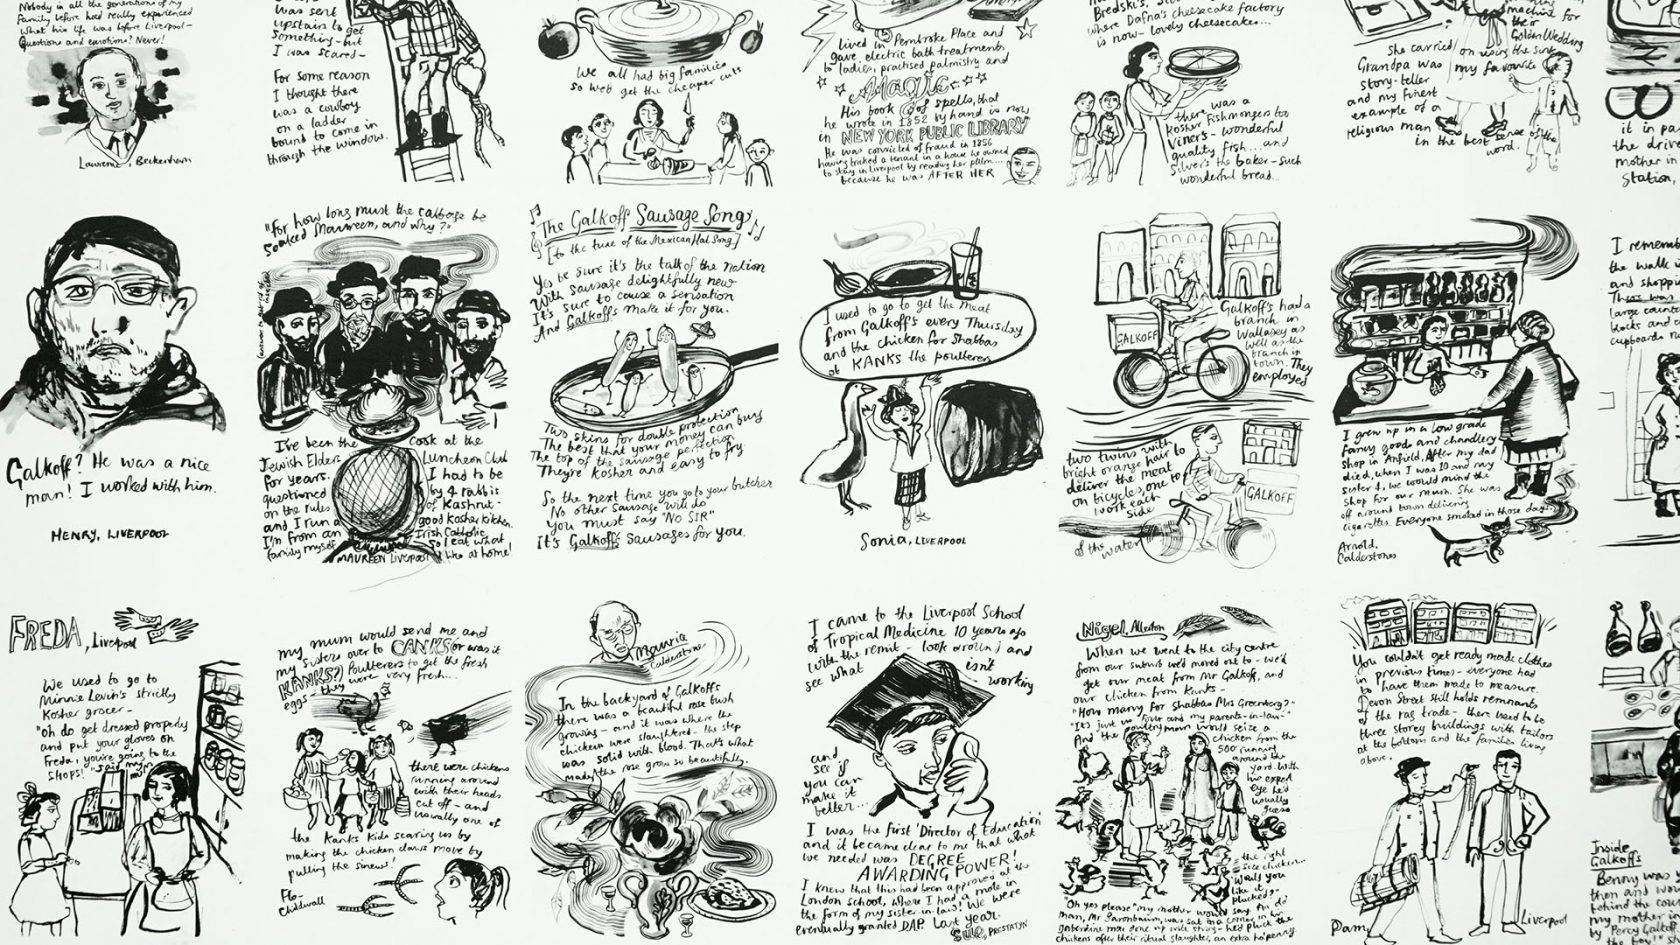 Nobody in all the generations of my
family before had really experienced
what his life was before Liverpool-
Questions and emotions? Never!
Lawrence, Beckenham
was sent
upstairs to get
something - but
I was scared-
For some reason
I thought there
was a cowboy
on a ladder
bound to come in
through the window.
We all had big families
so we'd get the cheaper cuts
lived in Pembroke Place and
gave electric bath treatments
to ladies, practised palmistry and
Magic
His book of spells, that
he wrote in 1852 by hand is now
in NEW YORK PUBLIC LIBRARY
He was convicted of fraud in 1856
having tricked a tenant in a house he owned
to stay in Liverpool by reading her palm...
because he was AFTER HER
Bredski's,
where Dafna's cheesecake factory
is now - lovely cheesecake...
there was a
Kosher Fishmongers too
Viner's - wonderful
quality fish... and
Silver's the baker - such
wonderful bread...
machine for
their
Golden Wedding
She carried on using the
Grandpa was my favourite
story-teller
and my finest
example of a
religious man
in the best sense of the
word.
it in
the drive
mother in
Station,
Galkoff? He was a nice
man! I worked with him.
HENRY, LIVERPOOL
"For how long must the cabbage be
soaked Maureen, and why?"
I've been the cook at the
Jewish Elders Luncheon Club
for years. I had to be
questioned by 4 rabbis
on the rules of Kashrut -
and I run a good kosher kitchen.
I'm from an Irish Catholic
family myself So I eat what
I like at home!
MAUREEN LIVERPOOL
The Galkoff Sausage Song
[to the tune of the Mexican Hat Song]
Yes be sure it's the talk of the nation
With sausage delightfully new
It's sure to cause a sensation
And Galkoff's make it for you.
Two skins for double protection
The best that your money can buy
The top of the sausage perfection
They're kosher and easy to fry.
So the next time you go to your butcher
No other sausage will do
You must say "NO SIR"
It's Galkoff's Sausages for you.
I used to go to get the meat
from Galkoff's every Thursday
and the chicken for Shabbas
at KANKS the poulterer
Sonia, LIVERPOOL
GALKOFF
Galkoff's had a
branch in
Wallasey as
well as the
branch in
town. They
employed
two twins with
bright orange hair to
deliver the meat
on bicycles, one to
work each
side
of the water
GALKOFF
I grew up in a low grade
fancy goods and chandlery
shop in Anfield. After my dad
died, when I was 10 and my
sister 4, we would mind the
shop for our mum. She was
off around town delivering
cigarettes. Everyone smoked in those days.
Arnold,
Calderstones
I
the walk
and shoppi
That was
large counte
blocks and
cupboards
FREDA, Liverpool
We used to go to
Minnie Levin's strictly
Kosher grocer-
"Oh do get dressed properly
and put your gloves on
Freda, you're going to the
shops!" said my
my mum would send me and
my sisters over to CANKS (or was it
KANKS?) Poulterers to get the fresh
eggs - they were very fresh...
there were chickens
running around
with their heads
cut off - and
usually one of
the Kanks kids scaring us by
making the chicken claws move by
pulling the sinews!
Flo-
Childwall
Maurice
Calderstones
In the backyard of Galkoff's
there was a beautiful rose bush
growing - and it was where the
chickens were slaughtered - the step
was solid with blood. That's what
made the rose grow so beautifully.
I came to the Liverpool School
of Tropical Medicine 10 years ago
with the remit - look around and
see what isn't
working
and
see if
you can
make it
better...
I was the first 'Director of Education'
and it became clear to me that what
we needed was DEGREE
AWARDING POWER!
I knew that this had been approved at the
London school, where I had a mole in
the form of my sister in law! We were
eventually granted DAP last year.
SUE, PRESTATYN
Nigel, Allerton
When we went to the city centre
from our suburb we'd moved out to - we'd
get our meat from Mr Galkoff, and
our chicken from Kanks-
"How many for Shabbas Mrs Greenberg?"
"It's just us four and my parents-in-law-"
And the poultry man would seize a
chicken from the
500 running
around the
yard. With
his expert
eye he'd
usually
guess
the right
size chicken...
"Would you
like it
plucked?"
"Oh yes please" my mother would say.
man, Mr was sat in a corner in his
gaberdine mac done up with string - he'd pluck the
chickens after their ritual slaughter, an extra ha'penny.
You couldn't get ready made clothes
in previous times - everyone had
to have them made to measure.
Devon Street still holds remnants
of the rag trade - there used to be
three storey buildings with tailors
at the bottom and the families living
above.
Pam, Liverpool
Inside
Galkoff's
Benny was
them and
behind the
my mother
by Percy